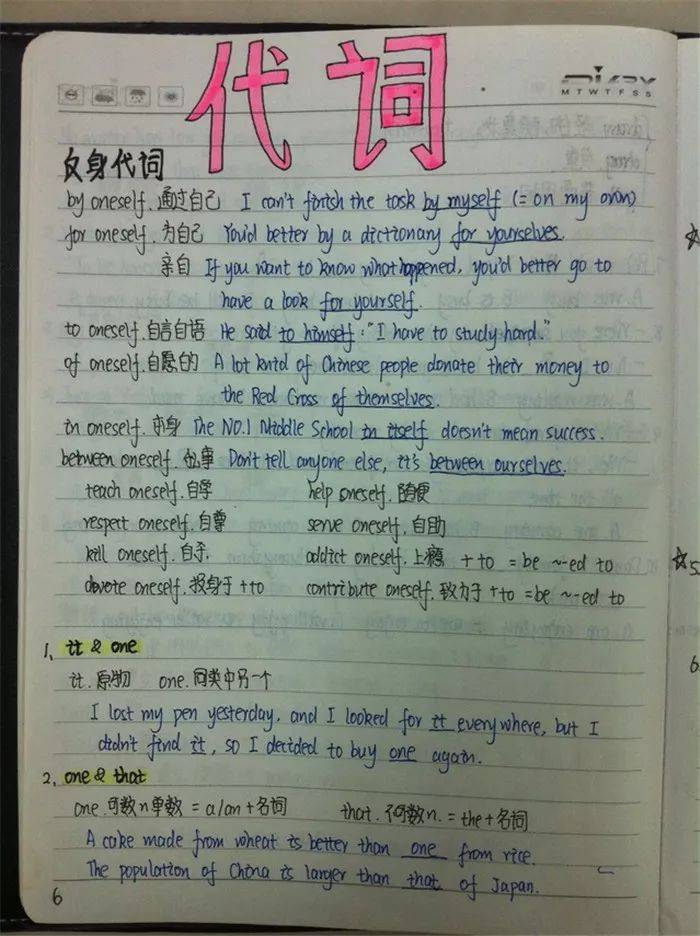 代词
DIARY
M T W T F S S
反身代词
by oneself. 通过自己 I can't finish the task by myself (= on my own)
for oneself. 为自己 You'd better by a dictionary for yourselves.
亲自 If you want to know what happened, you'd better go to
have a look for yourself.
to oneself. 自言自语 He said to himself: "I have to study hard."
of oneself. 自愿的 A lot knid of Chinese people donate their money to
the Red Cross of themselves.
in oneself. 本身 The NO.1 Middle School in itself doesn't mean success.
between oneself. 私事 Don't tell anyone else, it's between ourselves.
teach oneself. 自学 help oneself. 随便
respect oneself. 自尊 serve oneself. 自助
kill oneself. 自杀. addict oneself. 上瘾 + to = be ~-ed to
devote oneself. 投身于 + to contribute oneself. 致力于 + to = be ~-ed to
1. it & one
it. 原物 one. 同类中另一个
I lost my pen yesterday, and I looked for it everywhere, but I
didn't find it, so I decided to buy one again.
2. one & that
one. 可数n单数 = a/an + 名词 that. 不可数n. = the + 名词
A cake made from wheat is better than one from rice.
The population of China is larger than that of Japan.
6